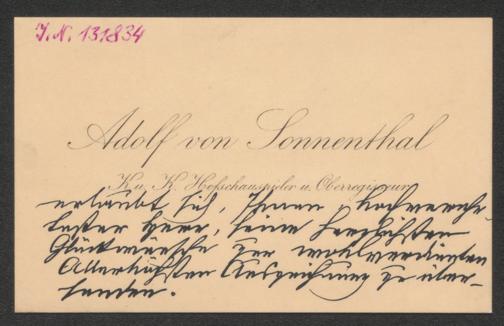 I.N. 131834
Adolf von Sonnenthal
K. u. K. Hofschauspieler u. Oberregisseur
erlaubt sich, Ihnen, hochverehr-
tester Herr, seine herzlichsten
Glückwünsche zur wohlverdienten
Allerhöchsten Auszeichnung zu über-
senden.